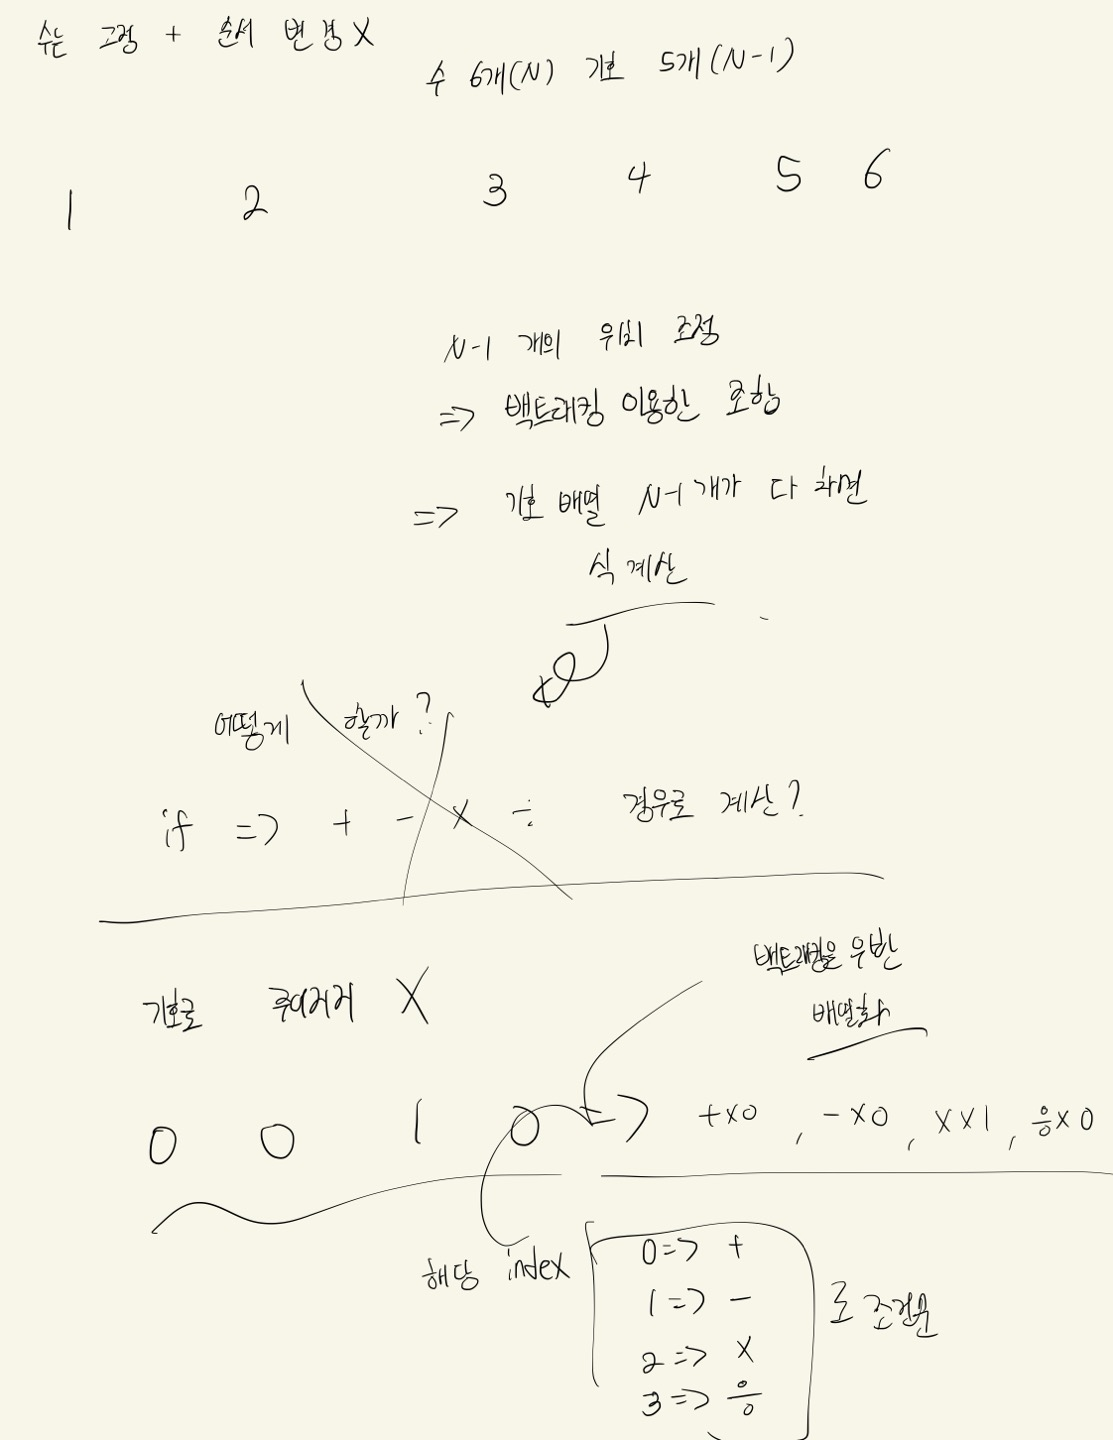 수는 고정 + 순서 변경 X
수 6개(N) 기호 5개(N-1)
1 2 3 4 5 6
N-1 개의 위치 조정
=> 백트래킹 이용한 조합
=> 기호 배열 N-1개가 다 차면
식 계산
어떻게 할까?
if => + - x ÷ 경우로 계산?
백트래킹을 우반
배열화
기호로 주어지지 X
0 0 1 0 => +x0 , -x0 , xx1 , ÷x0
해당 index
0 => +
1 => -
2 => x
3 => ÷
로 조건문